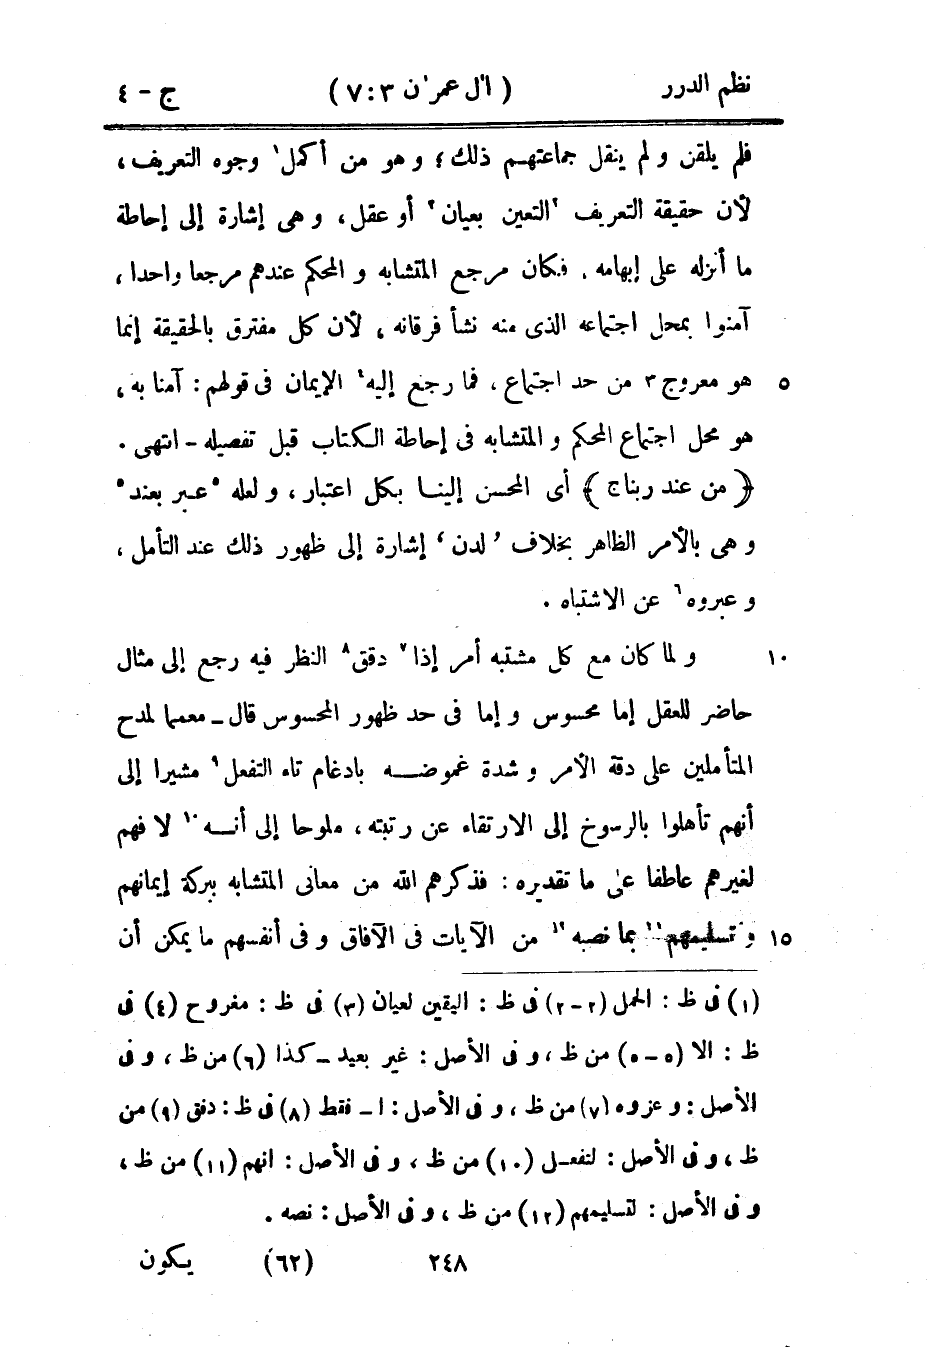 نظم الدرر (اٰل عمرٰن ٣ : ٧) ج - ٤
فلم يلقن و لم ينقل جماعتهم ذلك؛ و هو من أكمل١ وجوه التعريف،
لأن حقيقة التعريف ٢التعين بعيان٢ أو عقل، و هى إشارة إلى إحاطة
ما أنزله على إبهامه. فكان مرجع المتشابه و المحكم عندهم مرجعا واحدا،
آمنوا بمحل اجتماعه الذى منه نشأ فرقانه، لأن كل مفترق بالحقيقة إنما
٥ هو معروج٣ من حد اجتماع، فما رجع إليه٤ الإيمان فى قولهم: آمنا به،
هو محل اجتماع المحكم و المتشابه فى إحاطة الكتاب قبل تفصيله - انتهى.
﴿من عند ربناج﴾ أى المحسن إلينا بكل اعتبار، و لعله ٥عبر بعند٥
و هى بالأمر الظاهر بخلاف ’لدن‘ إشارة إلى ظهور ذلك عند التأمل،
و عبروه٦ عن الاشتباه.
١٠ و لما كان مع كل مشتبه أمر إذا٧ دقق٨ النظر فيه رجع إلى مثال
حاضر للعقل إما محسوس و إما فى حد ظهور المحسوس قال - معمما لمدح
المتأملين على دقة الأمر و شدة غموضه بادغام تاء التفعل٩ مشيرا إلى
أنهم تأهلوا بالرسوخ إلى الارتقاء عن رتبته، ملوحا إلى أنه١٠ لا فهم
لغيرهم عاطفا على ما تقديره: فذكرهم الله من معانى المتشابه ببركة إيمانهم
١٥ و تسليمهم١١ بما نصبه١٢ من الآيات فى الآفاق و فى أنفسهم ما يمكن أن
(١) فى ظ: الحمل (٢-٢) فى ظ: اليقين لعيان (٣) فى ظ: مفروح (٤) فى
ظ: الا (٥-٥) من ظ، و فى الأصل: غير بعيد - كذا (٦) من ظ، و فى
الأصل: و عزوه (٧) من ظ، و فى الأصل: ا - فقط (٨) فى ظ: دفق (٩) من
ظ، و فى الأصل: لتفعل (١٠) من ظ، و فى الأصل: انهم (١١) من ظ،
و فى الأصل: لتسليمهم (١٢) من ظ، و فى الأصل: نصه.
٢٤٨ (٦٢) يكون